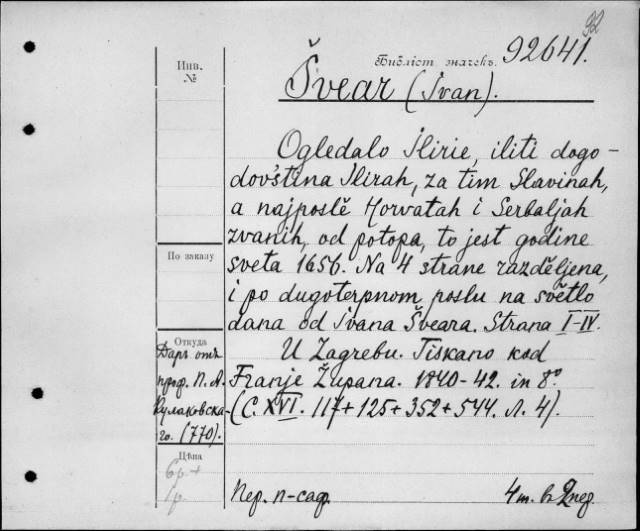 92
Библіот. значекъ. 92641.
Инв.
№
Švear (Ivan).
Ogledalo Ilirie, iliti dogo-
dovština Ilirah, za tim Slavinah,
a najposlě Horvatah i Serbaljah
zvanih, od potopa, to jest godine
sveta 1656. Na 4 strane razděljena,
i po dugoterpnom poslu na světlo
dana od Ivana Šveara. Strana I-IV.
U Zagrebu. Tiskano kod
Franje Župana. 1840-42. in 8°
(С. XVI. 117+125+352+544. Л. 4).
По заказу
Откуда
Даръ отъ
проф. П. А.
Кулаковска-
го. (770).
Цѣна
6р.+
1р.
Пер. п-саф.
4 т. въ 2 пер.